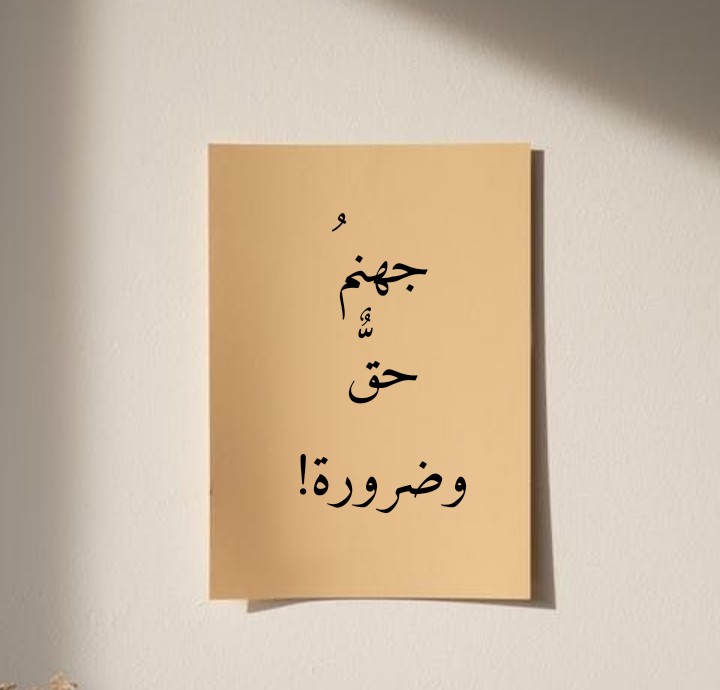 جهنمُ
حقٌّ
وضرورة!